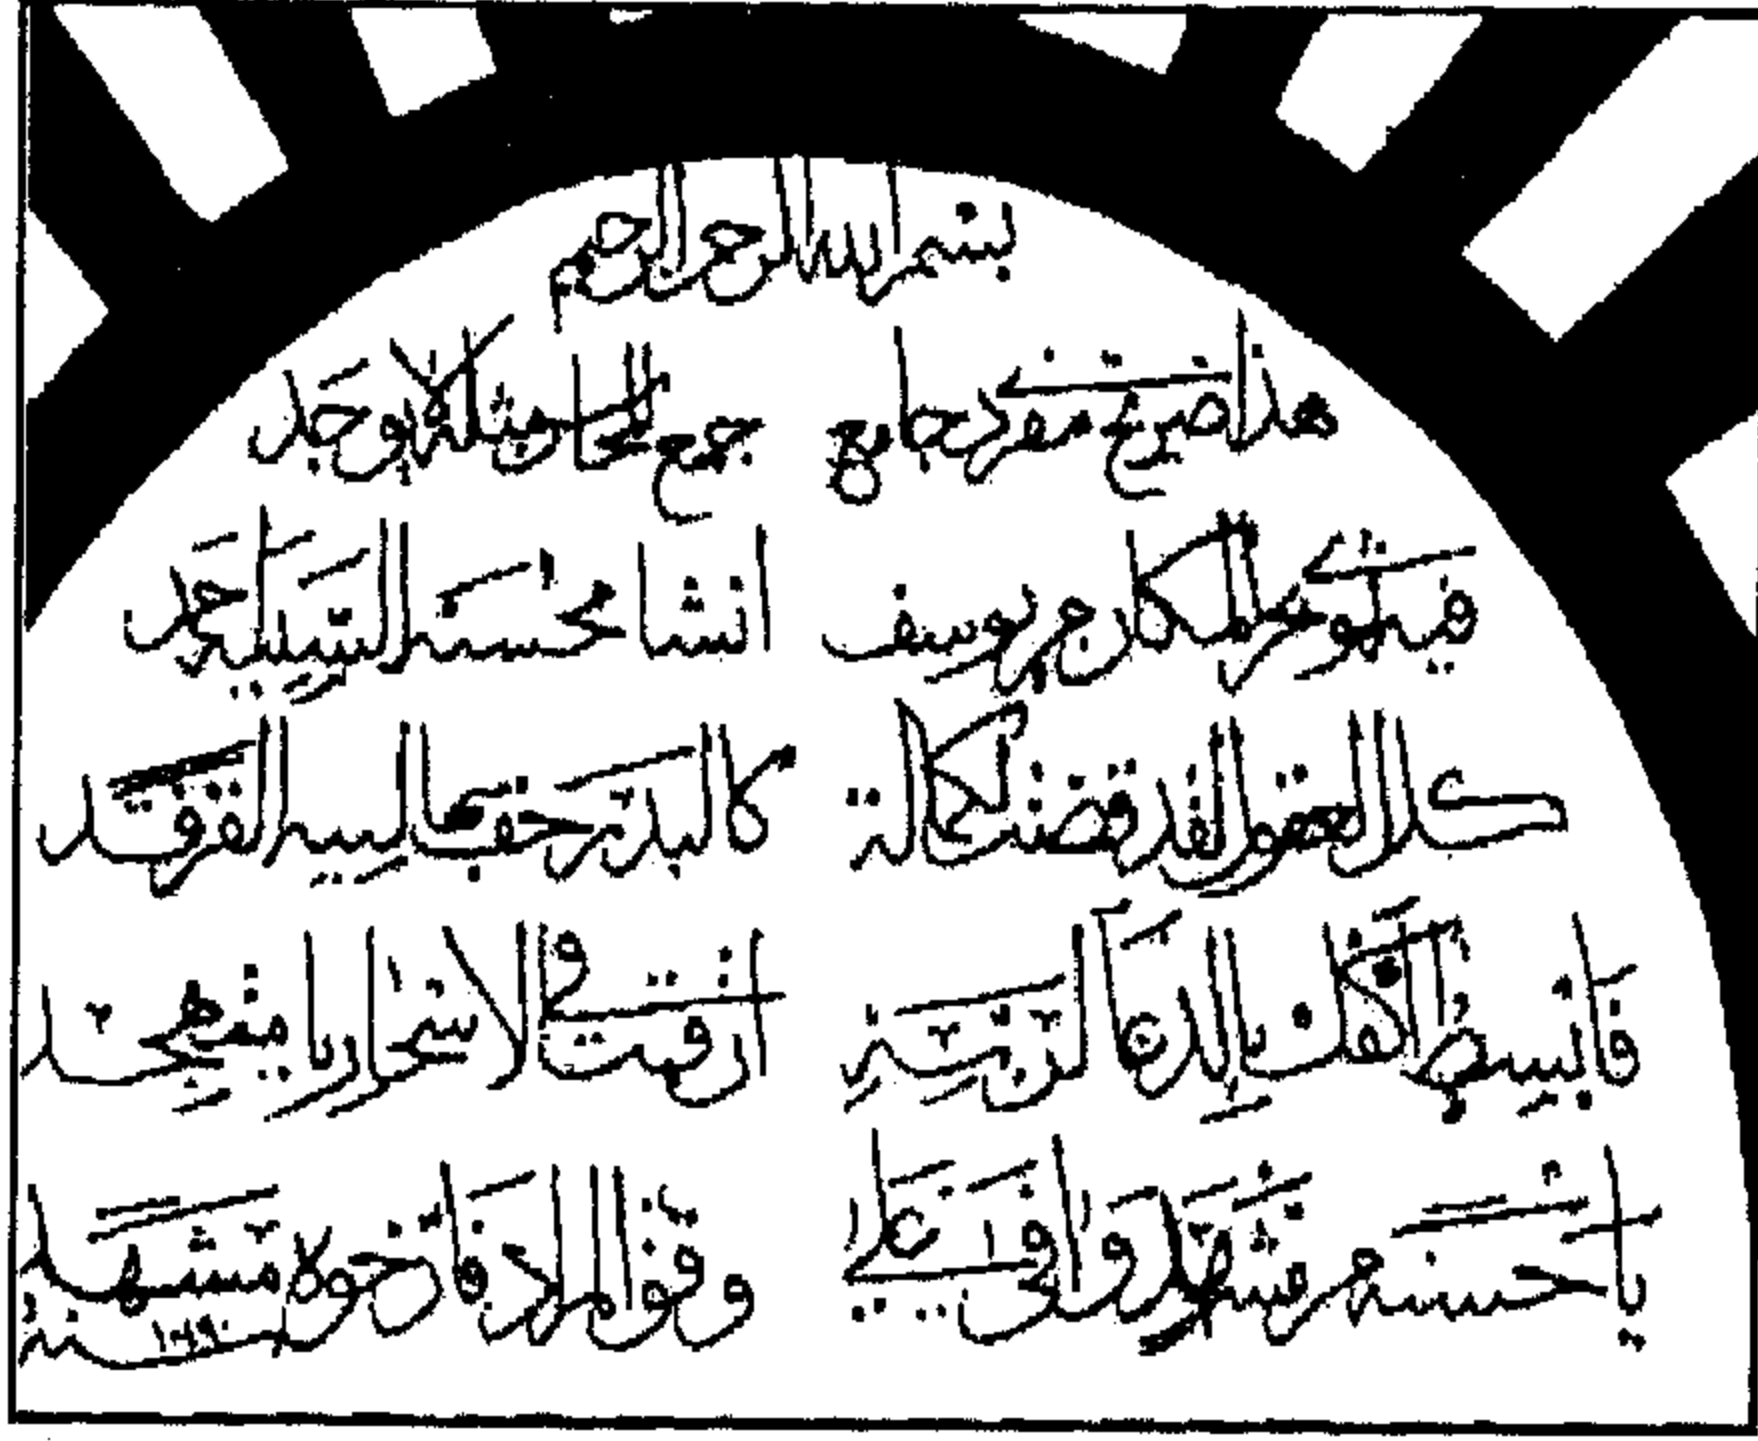 بسم الله الرحمن الرحيم
هذا ضريح مفرد جامع جميع المحاسن مثله لا يوجد
فيه المكارم يوسف انشا محاسنه السيد احمد
كل العقول لقد قضت لكماله كالبدر حف بجانبيه الفرقد
فابسط اكفك بالدعاء لمن بنيه ان قمت في الاسحار يا متهجد
يا حسنه من مشهد وافى على وفق المراد فارخوه مشهد
سنة ١٠٩٠